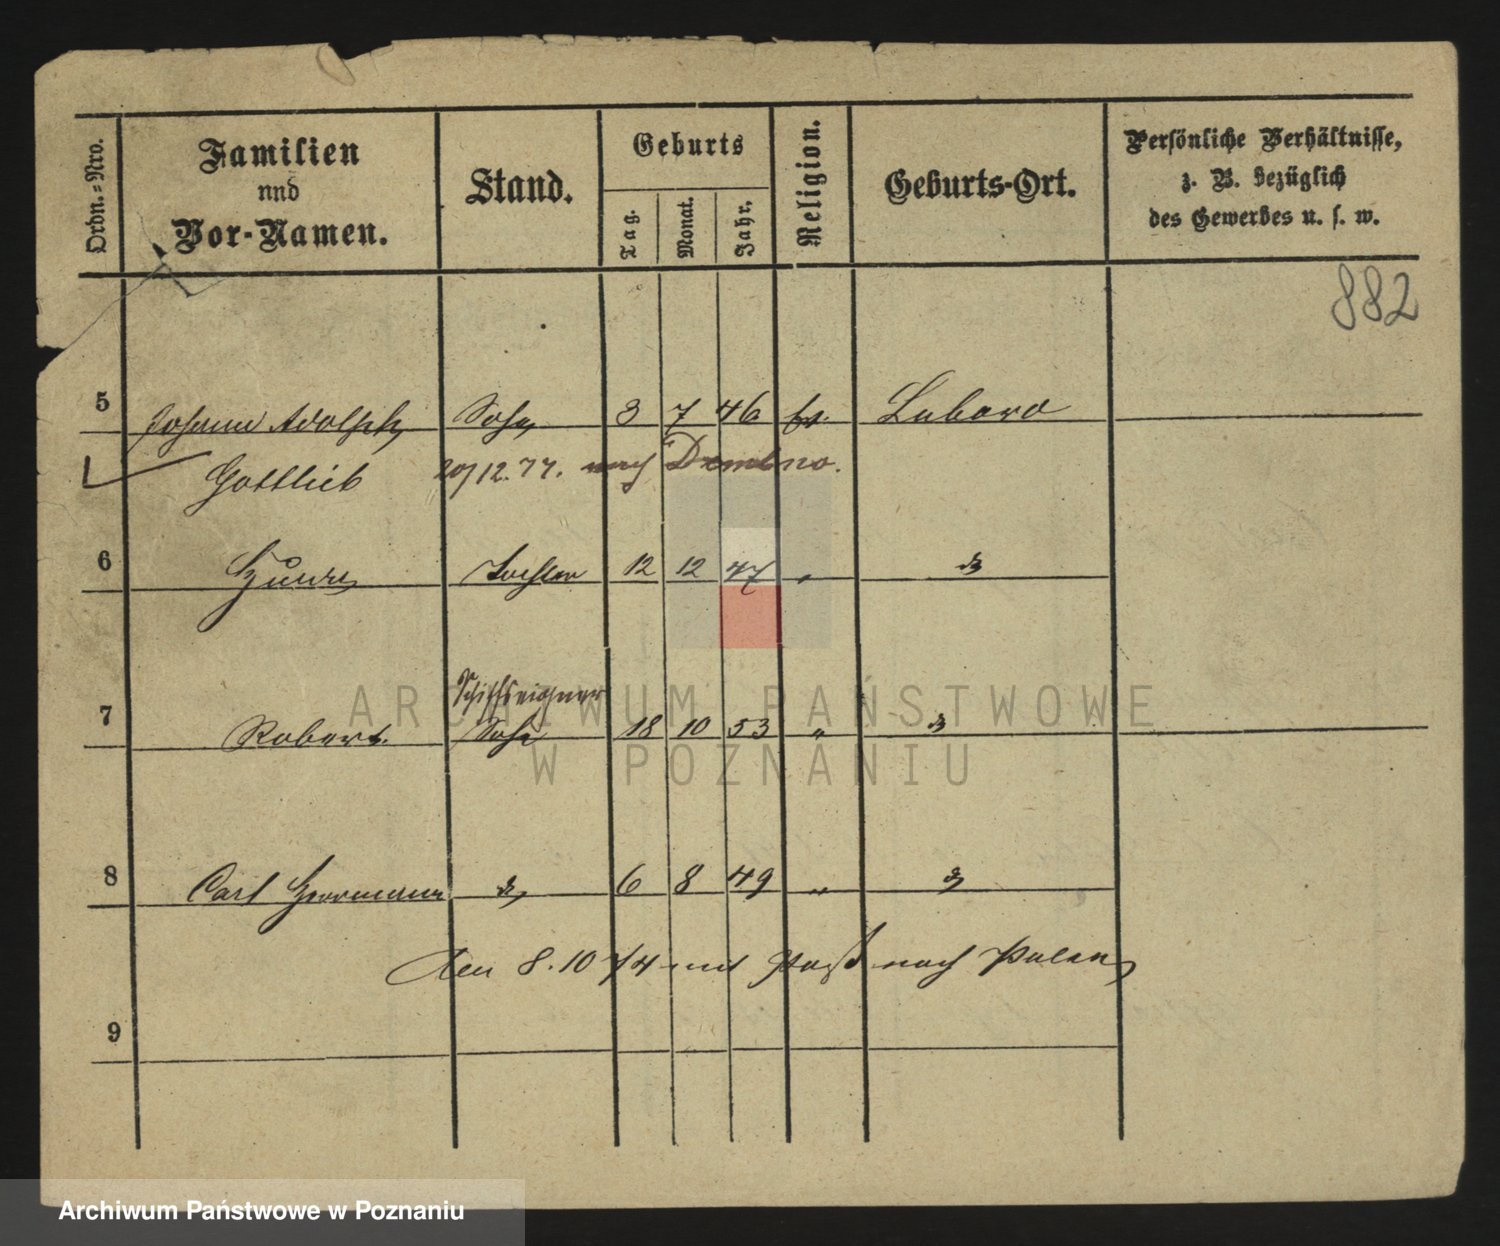 Ordn.=Nro.
Familien
und
Vor-Namen.
Stand.
Geburts
Tag.
Monat.
Jahr.
Religion.
Geburts-Ort.
Persönliche Verhältnisse,
z. B. bezüglich
des Gewerbes u. s. w.
882
5 Johann Adolph Sohn 3 7 46 ev. Labord
Gottlieb 20/12.77. nach Dembno.
6 Tochter 12 12 47 „ do
Schiffseigner
7 Robert Sohn 18 10 53 „ do
8 Carl Herrmann do 6 8 49 „ do
Den 8.10 74 mit Paß nach Polen
9
ARCHIWUM PAŃSTWOWE
W POZNANIU
Archiwum Państwowe w Poznaniu